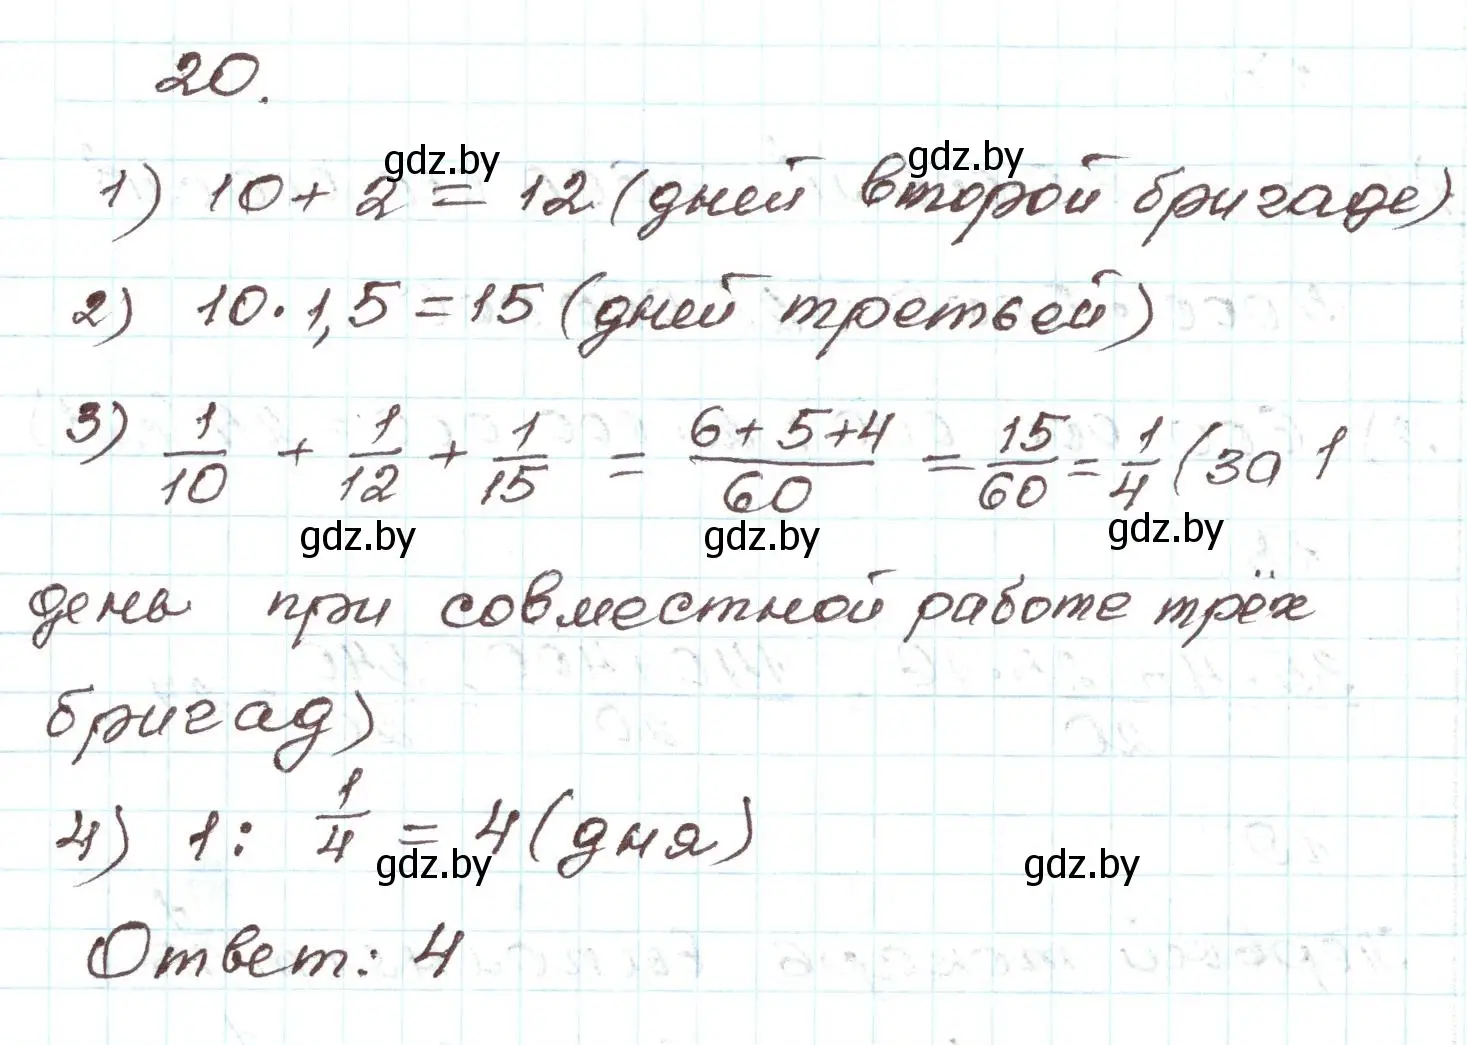 20.
gdz.by gdz.by
1) 10 + 2 = 12 (дней второй бригаде)
2) 10 · 1,5 = 15 (дней третьей)
3) 1/10 + 1/12 + 1/15 = (6 + 5 + 4)/60 = 15/60 = 1/4 (за 1
gdz.by gdz.by gdz.by
день при совместной работе трёх
бригад)
4) 1 : 1/4 = 4 (дня)
gdz.by gdz.by
Ответ: 4